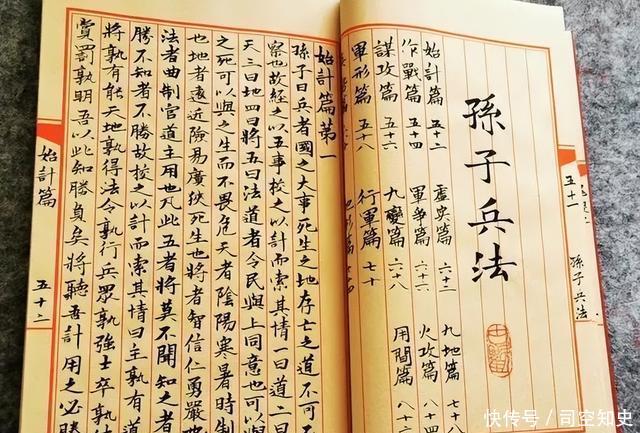 孫子兵法
五十一
孫子兵法
始計篇 五十二 虛實篇 六十二 九地篇 七十八
作戰篇 五十四 軍爭篇 六十四 火攻篇 八十四
謀攻篇 五十六 九變篇 六十八 用間篇 八十
軍形篇 五十八 行軍篇 七十
始計篇第一
孫子曰兵者國之大事死生之地存亡之道不可不
察也故經之以五事校之以計而索其情一曰道二曰
天三曰地四曰將五曰法道者令民與上同意也可以
之死可以與之生而不畏危天者陰陽寒暑時制
也地者遠近險易廣狹死生也將者智信仁勇嚴也
法者曲制官道主用也凡此五者將莫不聞知之者
勝不知者不勝故校之以計而索其情曰主孰有
將孰有能天地孰得法令孰行兵眾孰強士卒孰
賞罰孰明吾以此知勝負矣將聽吾計用之必勝
始計篇
五十二
快传号／司空知史